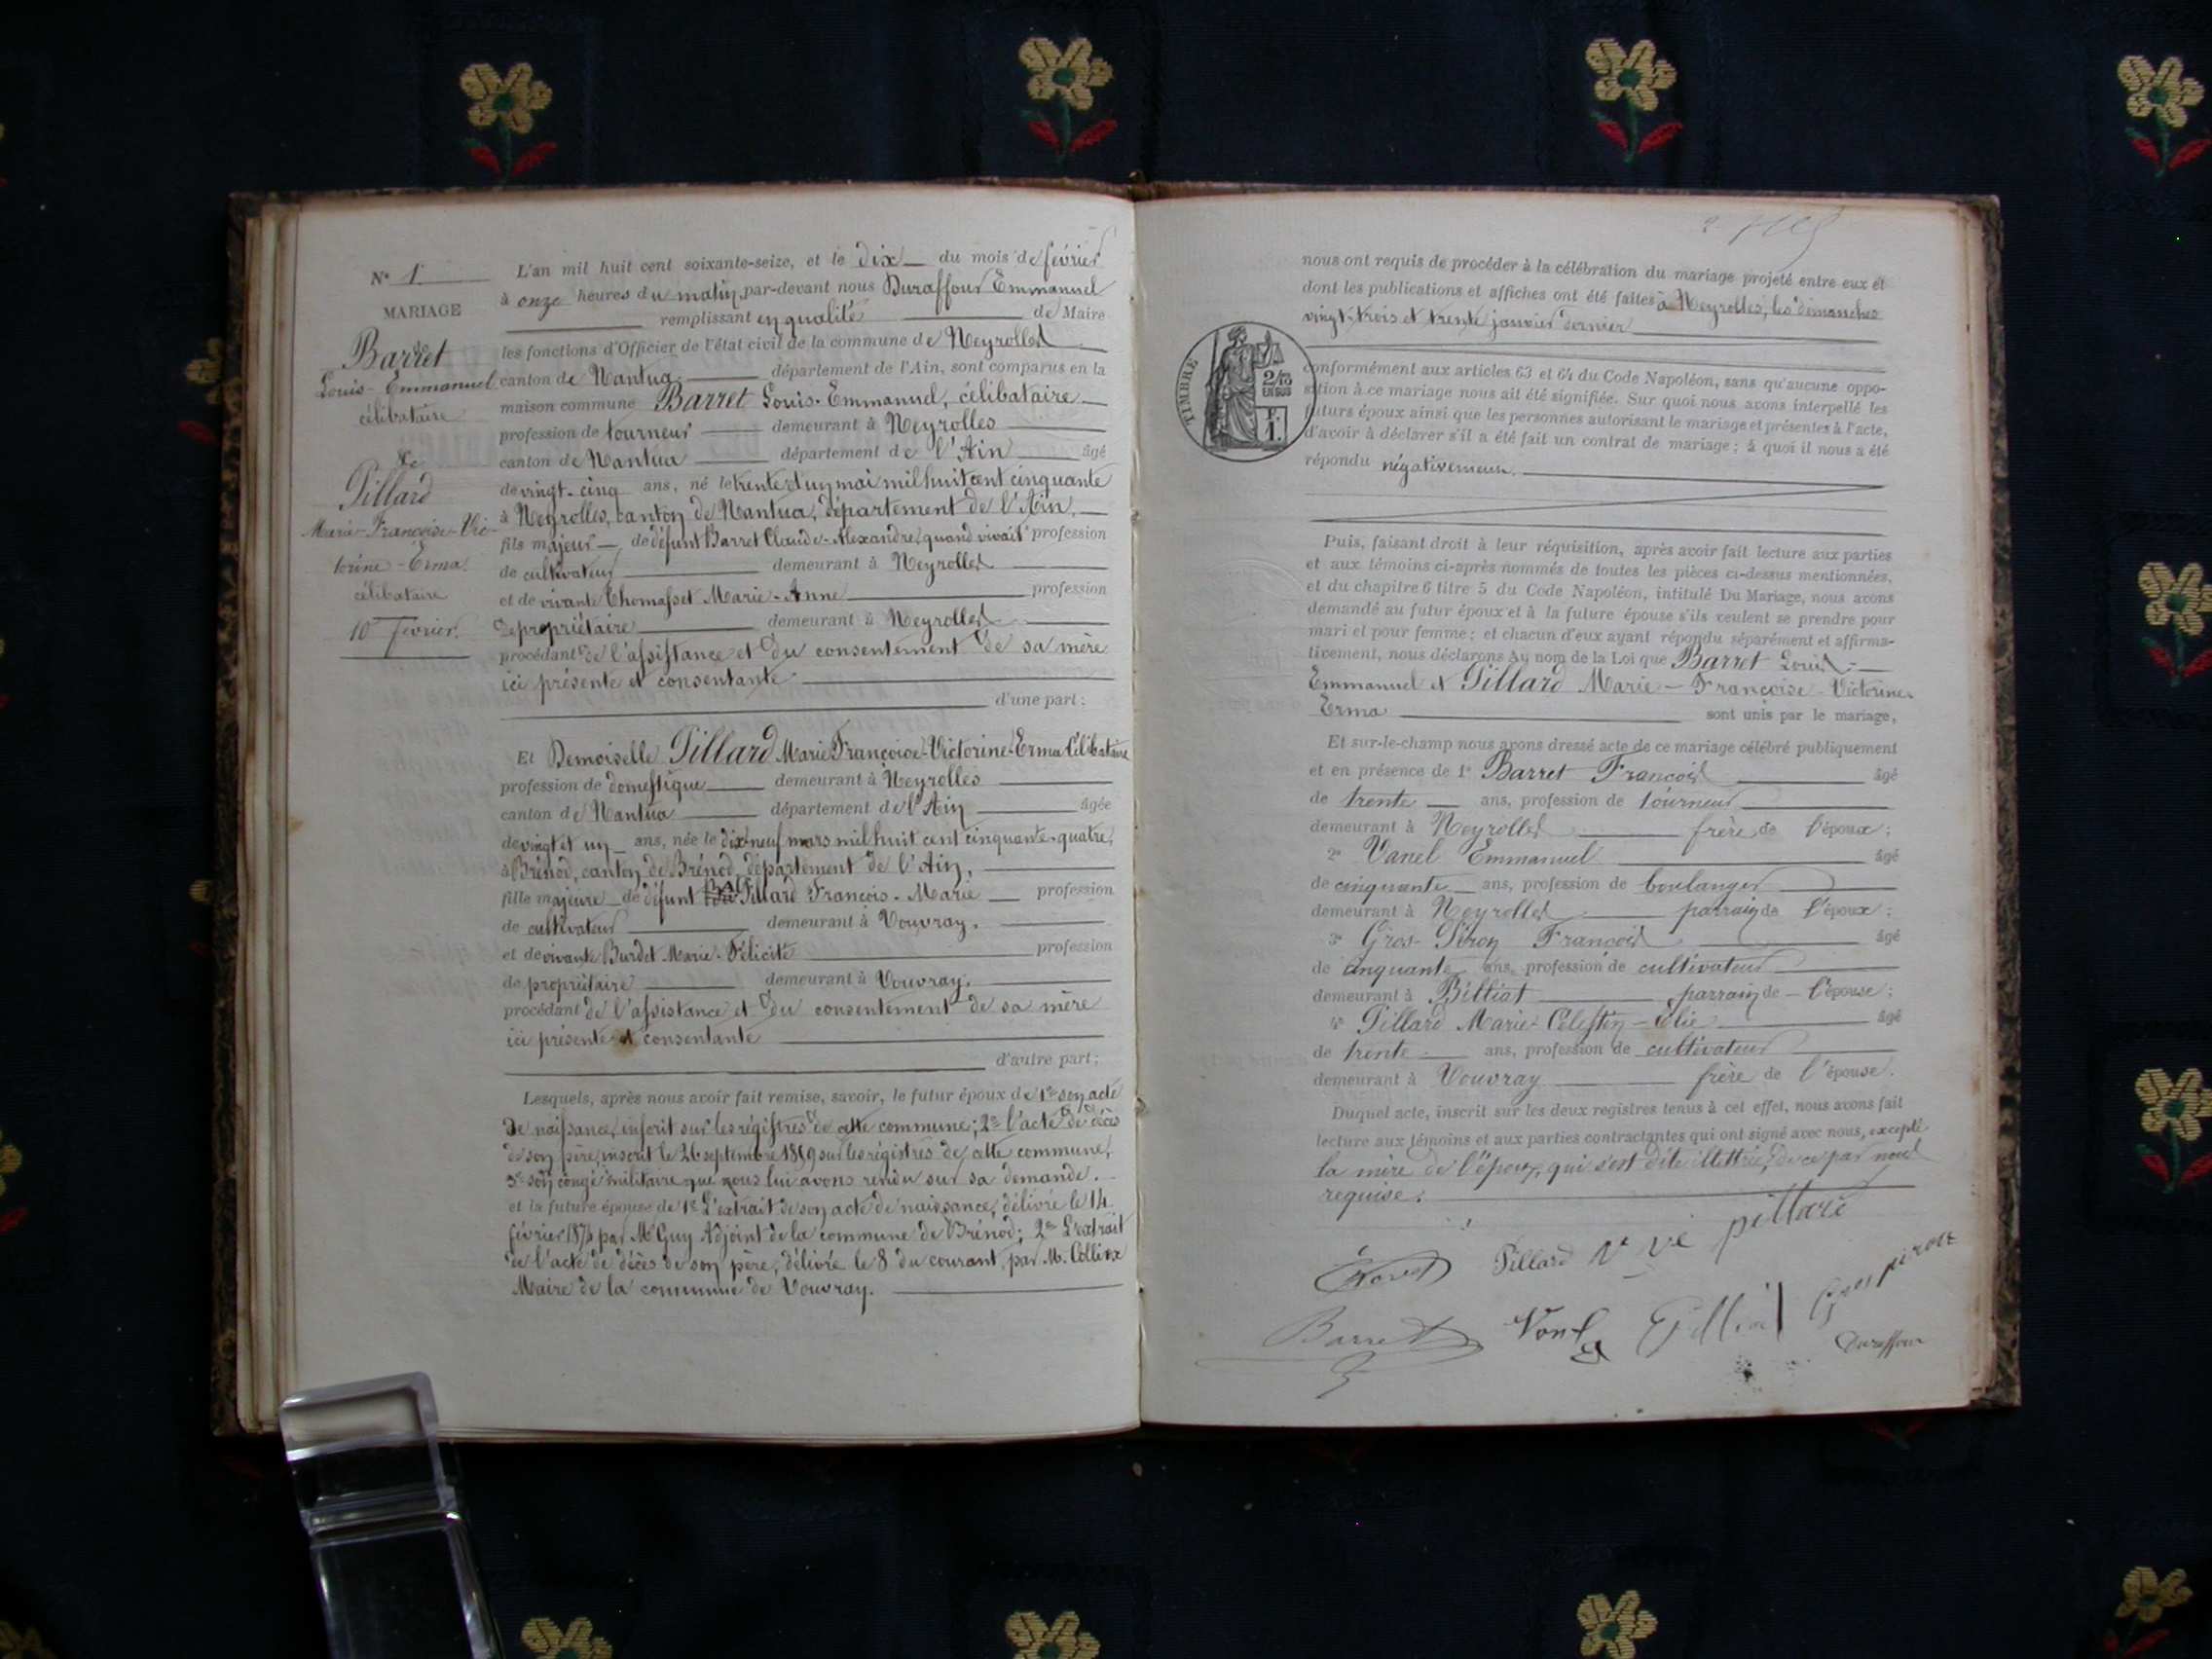 N° 1
MARIAGE
de
Barret
Louis-Emmanuel
célibataire
&
Pillard
Marie-Françoise-Vic-
torine-Erma
célibataire
10 février.
L'an mil huit cent soixante-seize, et le dix du mois de février
à onze heures du matin, par-devant nous Duraffour Emmanuel
remplissant en qualité de Maire
les fonctions d'Officier de l'état civil de la commune de Neyrolles
canton de Nantua département de l'Ain, sont comparus en la
maison commune Barret Louis-Emmanuel, célibataire
profession de tourneur demeurant à Neyrolles
canton de Nantua département de l'Ain âgé
de vingt-cinq ans, né le trente et un mai mil huit cent cinquante
à Neyrolles, canton de Nantua, département de l'Ain,
fils majeur de défunt Barret Claude-Alexandre, quand vivait profession
de cultivateur demeurant à Neyrolles
et de vivante Thomasset Marie-Anne profession
de propriétaire demeurant à Neyrolles
procédant de l'assistance et du consentement de sa mère
ici présente et consentante
d'une part:
Et Demoiselle Pillard Marie Françoise-Victorine-Erma Célibataire
profession de domestique demeurant à Neyrolles
canton de Nantua département de l'Ain âgée
de vingt et un ans, née le dix-neuf mars mil huit cent cinquante-quatre,
à Brénod, canton de Brénod, département de l'Ain,
fille majeure de défunt Pillard François-Marie profession
de cultivateur demeurant à Vouvray.
et de vivante Burdet Marie-Félicité profession
de propriétaire demeurant à Vouvray.
procédant de l'assistance et du consentement de sa mère
ici présente et consentante
d'autre part;
Lesquels, après nous avoir fait remise, savoir, le futur époux de 1° son acte
de naissance, inscrit sur les régistres de cette commune; 2° l'acte de décès
de son père, inscrit le 26 septembre 1869 sur les régistres de cette commune,
3° son congé militaire que nous lui avons rendu sur sa demande.
et la future épouse de 1° L'extrait de son acte de naissance, délivré le 14
février 1875 par Mr Guy Adjoint de la commune de Brénod; 2° L'extrait
de l'acte de décès de son père, délivré le 8 du courant, par M. Collinx
Maire de la commune de Vouvray.
nous ont requis de procéder à la célébration du mariage projeté entre eux et
dont les publications et affiches ont été faites à Neyrolles, les dimanches
vingt-trois et trente janvier dernier
TIMBRE
2/10
EN SUS
1F.
conformément aux articles 63 et 64 du Code Napoléon, sans qu'aucune oppo-
sition à ce mariage nous ait été signifiée. Sur quoi nous avons interpellé les
futurs époux ainsi que les personnes autorisant le mariage et présentes à l'acte,
d'avoir à déclarer s'il a été fait un contrat de mariage; à quoi il nous a été
répondu négativement.
Puis, faisant droit à leur réquisition, après avoir fait lecture aux parties
et aux témoins ci-après nommés de toutes les pièces ci-dessus mentionnées,
et du chapitre 6 titre 5 du Code Napoléon, intitulé Du Mariage, nous avons
demandé au futur époux et à la future épouse s'ils veulent se prendre pour
mari et pour femme; et chacun d'eux ayant répondu séparément et affirma-
tivement, nous déclarons Au nom de la Loi que Barret Louis-
Emmanuel et Pillard Marie-Françoise-Victorine-
Erma sont unis par le mariage,
Et sur-le-champ nous avons dressé acte de ce mariage célébré publiquement
et en présence de 1° Barret François âgé
de trente ans, profession de tourneur
demeurant à Neyrolles frère de l'époux;
2° Vanel Emmanuel âgé
de cinquante ans, profession de boulanger
demeurant à Neyrolles parrain de l'époux;
3° Gros-Piron François âgé
de cinquante ans, profession de cultivateur
demeurant à Billiat parrain de l'épouse;
4° Pillard Marie-Célestin-Elie âgé
de trente ans, profession de cultivateur
demeurant à Vouvray frère de l'épouse.
Duquel acte, inscrit sur les deux registres tenus à cet effet, nous avons fait
lecture aux témoins et aux parties contractantes qui ont signé avec nous, excepté
la mère de l'époux, qui s'est dite illettrée, de ce par nous
requise.
Pillard Ve pillard
Barret Gros piron
Duraffour